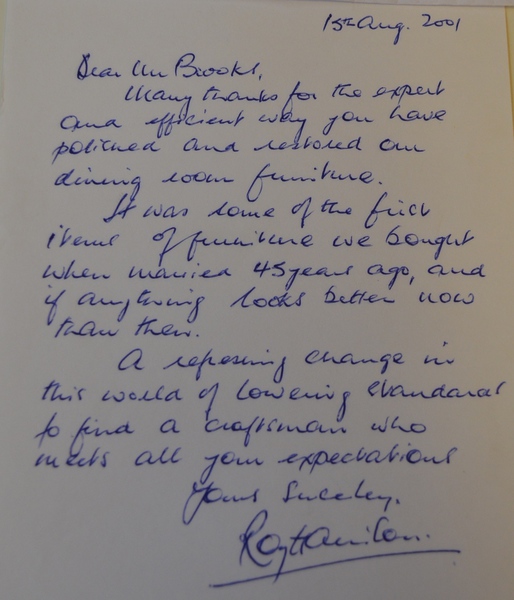 15th Aug. 2001
Dear Mr Brooks,
Many thanks for the expert
and efficient way you have
polished and restored our
dining room furniture.
It was some of the first
items of furniture we bought
when married 45 years ago, and
if anything looks better now
than then.
A refreshing change in
this world of lowering standards
to find a craftsman who
meets all your expectations
Yours Sincerely,
Ray